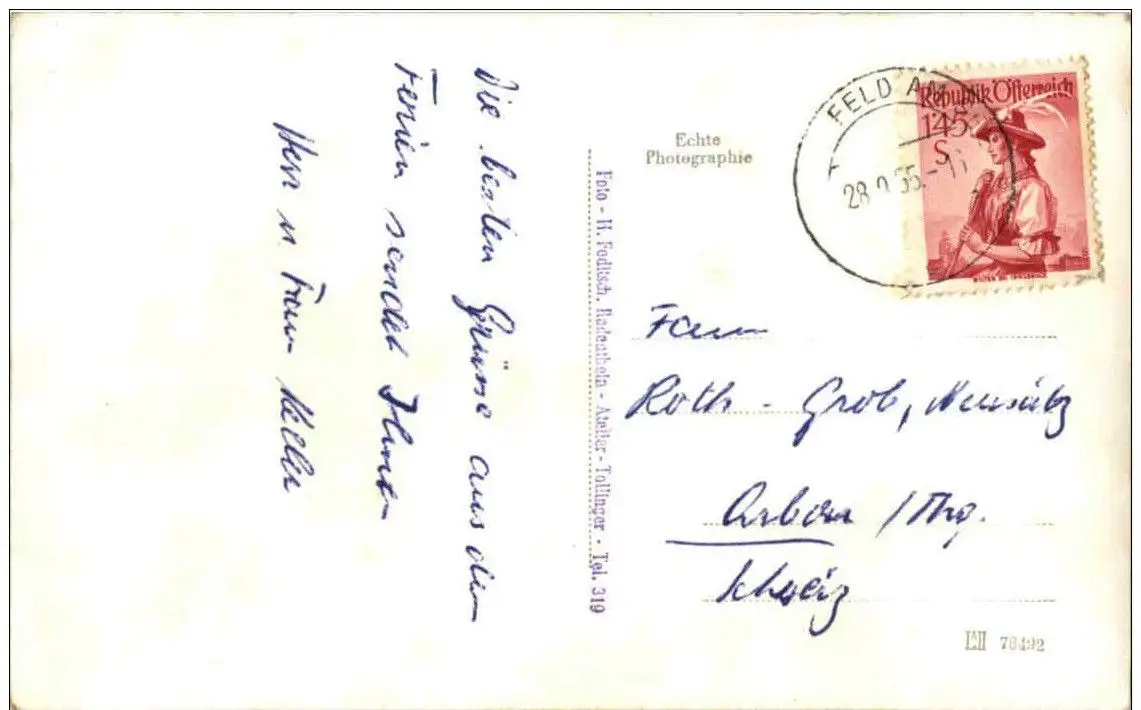 Die besten Grüsse aus den
Ferien sendet Ihnen
Herr u. Frau Keller
Foto - H. Foditsch, Radenthein - Atelier - Tollinger - Tel. 319
Echte
Photographie
FELD AM
28.9.55.-
Republik Österreich
1'45
S
Fam
Roth - Grob, Neusätz
Arbon /Thg.
Schweiz
78492